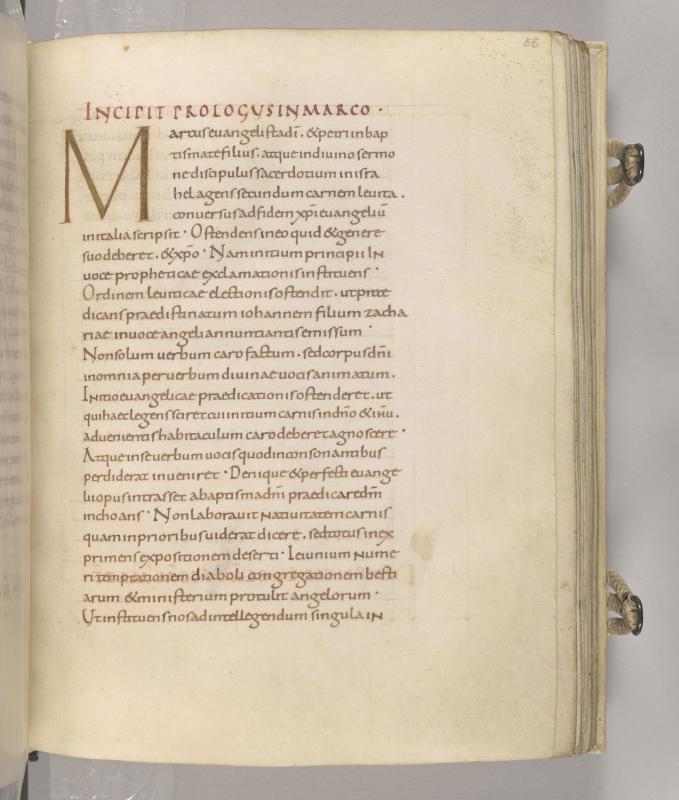 55
INCIPIT PROLOGUS IN MARCO ·
Marcus euangelista dī . & petri in bap
tismate filius . atque in diuino sermo
ne discipulus sacerdotium in isra
hel agens secundum carnem leuita .
conuersus ad fidem xp̄i euangeliū
in italia scripsit · Ostendens in eo quid & genere
suo deberet . & xp̄o · Nam initium principii IN
uoce propheticae exclamationis instituens ·
Ordinem leuiticae electionis ostendit . ut prae
dicans praedistinatum iohannem filium zacha
riae in uoce angeli annuntiantis emissum ·
Non solum uerbum caro factum . sed corpus dn̄i
in omnia per uerbum diuinae uocis animatum .
Initio euangelicae praedicationis ostenderet . ut
qui haec legens sciret cui initium carnis in dn̄o & ih̄u .
aduenientis habitaculum caro deberet agnoscere ·
Atque in se uerbum uocis quod in consonantibus
perdiderat inueniret · Denique & perfecti euange
lii opus intrasset a baptismo dn̄i praedicare dm̄
inchoans · Non laborauit natiuitatem carnis
quam in prioribus uiderat dicere . sed totus in ex
primens expositionem deserti · Ieiunium nume
ri temptationem diaboli congregationem besti
arum & ministerium protulit angelorum ·
Ut instituens nos ad intellegendum singula IN